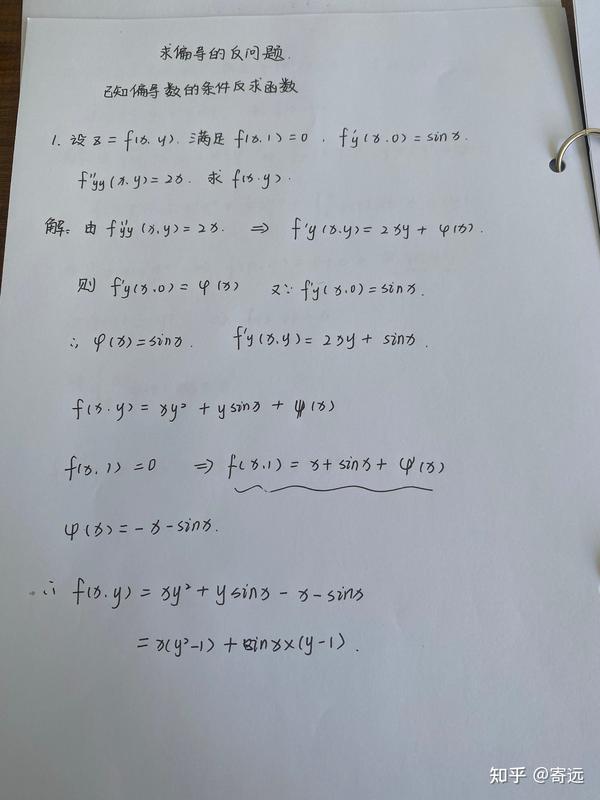 求偏导的反问题.
已知偏导数的条件反求函数
1. 设 z = f(x, y). 满足 f(x, 1) = 0 , f'y(x, 0) = sinx.
f''yy(x, y) = 2x. 求 f(x, y).
解: 由 f''yy(x, y) = 2x. ⇒ f'y(x, y) = 2xy + φ(x).
则 f'y(x, 0) = φ(x) 又∵ f'y(x, 0) = sinx.
∴ φ(x) = sinx. f'y(x, y) = 2xy + sinx.
f(x, y) = xy² + ysinx + ψ(x)
f(x, 1) = 0 ⇒ f(x, 1) = x + sinx + φ(x)
φ(x) = -x - sinx.
∴ f(x, y) = xy² + ysinx - x - sinx
= x(y²-1) + sinx×(y-1).
知乎 @寄远